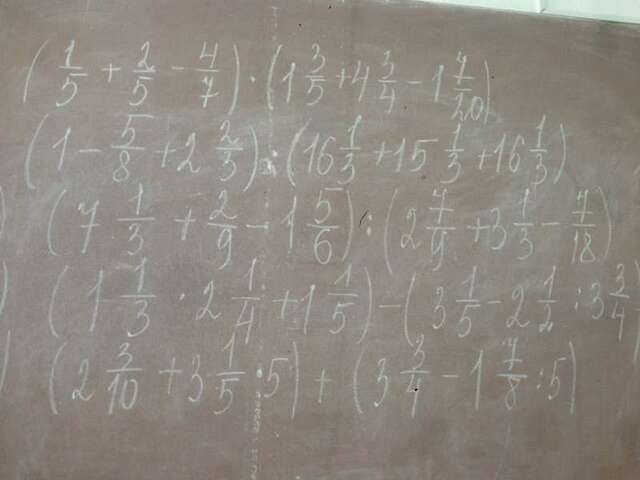 (1/5 + 2/5 - 4/7) · (1 3/5 + 4 3/4 - 1 7/20)
(1 - 5/8 + 2 2/3) · (16 1/3 + 15 1/3 + 16 1/3)
) (7 1/3 + 2/9 - 1 5/6) : (2 7/9 + 3 1/3 - 7/18)
) (1 1/3 · 2 1/4 + 1 1/5) - (3 1/5 - 2 1/2 : 3 3/4)
) (2 3/10 + 3 1/5 · 5) + (3 3/4 - 1 7/8 : 5)